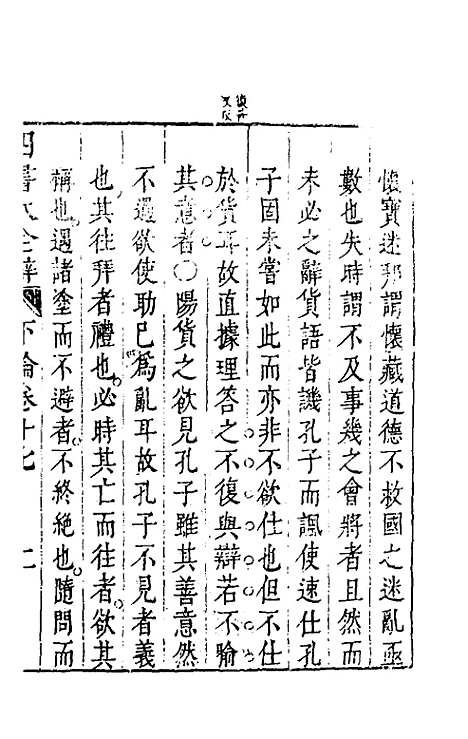 懷寶迷邦謂懷藏道德不救國之迷亂亟
數也失時謂不及事幾之會將者且然而
未必之辭貨語皆譏孔子而諷使速仕孔
子固未嘗如此而亦非不欲仕也但不仕
於貨耳故直據理答之不復與辯若不喻
其意者○陽貨之欲見孔子雖其善意然
不過欲使助己為亂耳故孔子不見者義
也其往拜者禮也必時其亡而往者欲其
稱也遇諸塗而不避者不終絕也隨問而
四書大全辯 下論卷十七 二